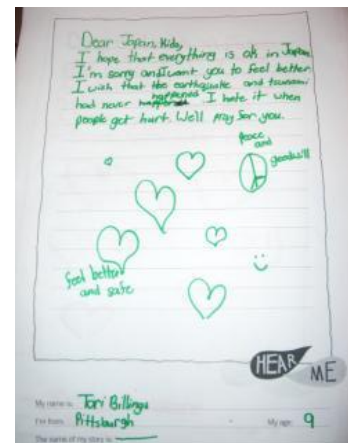 Dear Japan Kids,
I hope that everything is ok in Japan.
I'm sorry and I want you to feel better
I wish that the earthquake and tsunami
had never happened I hate it when
people get hurt. We'll pray for you.
Peace
and
goodwill
feel better
and safe
HEAR
ME
My name is Tori Billings
I'm from Pittsburgh
My age 9
The name of my story is